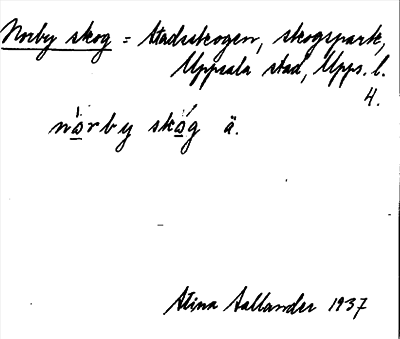 Norby skog = Stadsskogen, skogspark,
Uppsala stad, Upps. l.
4.
nǫ́rby skǫ́g ä.
Stina Sallander 1937